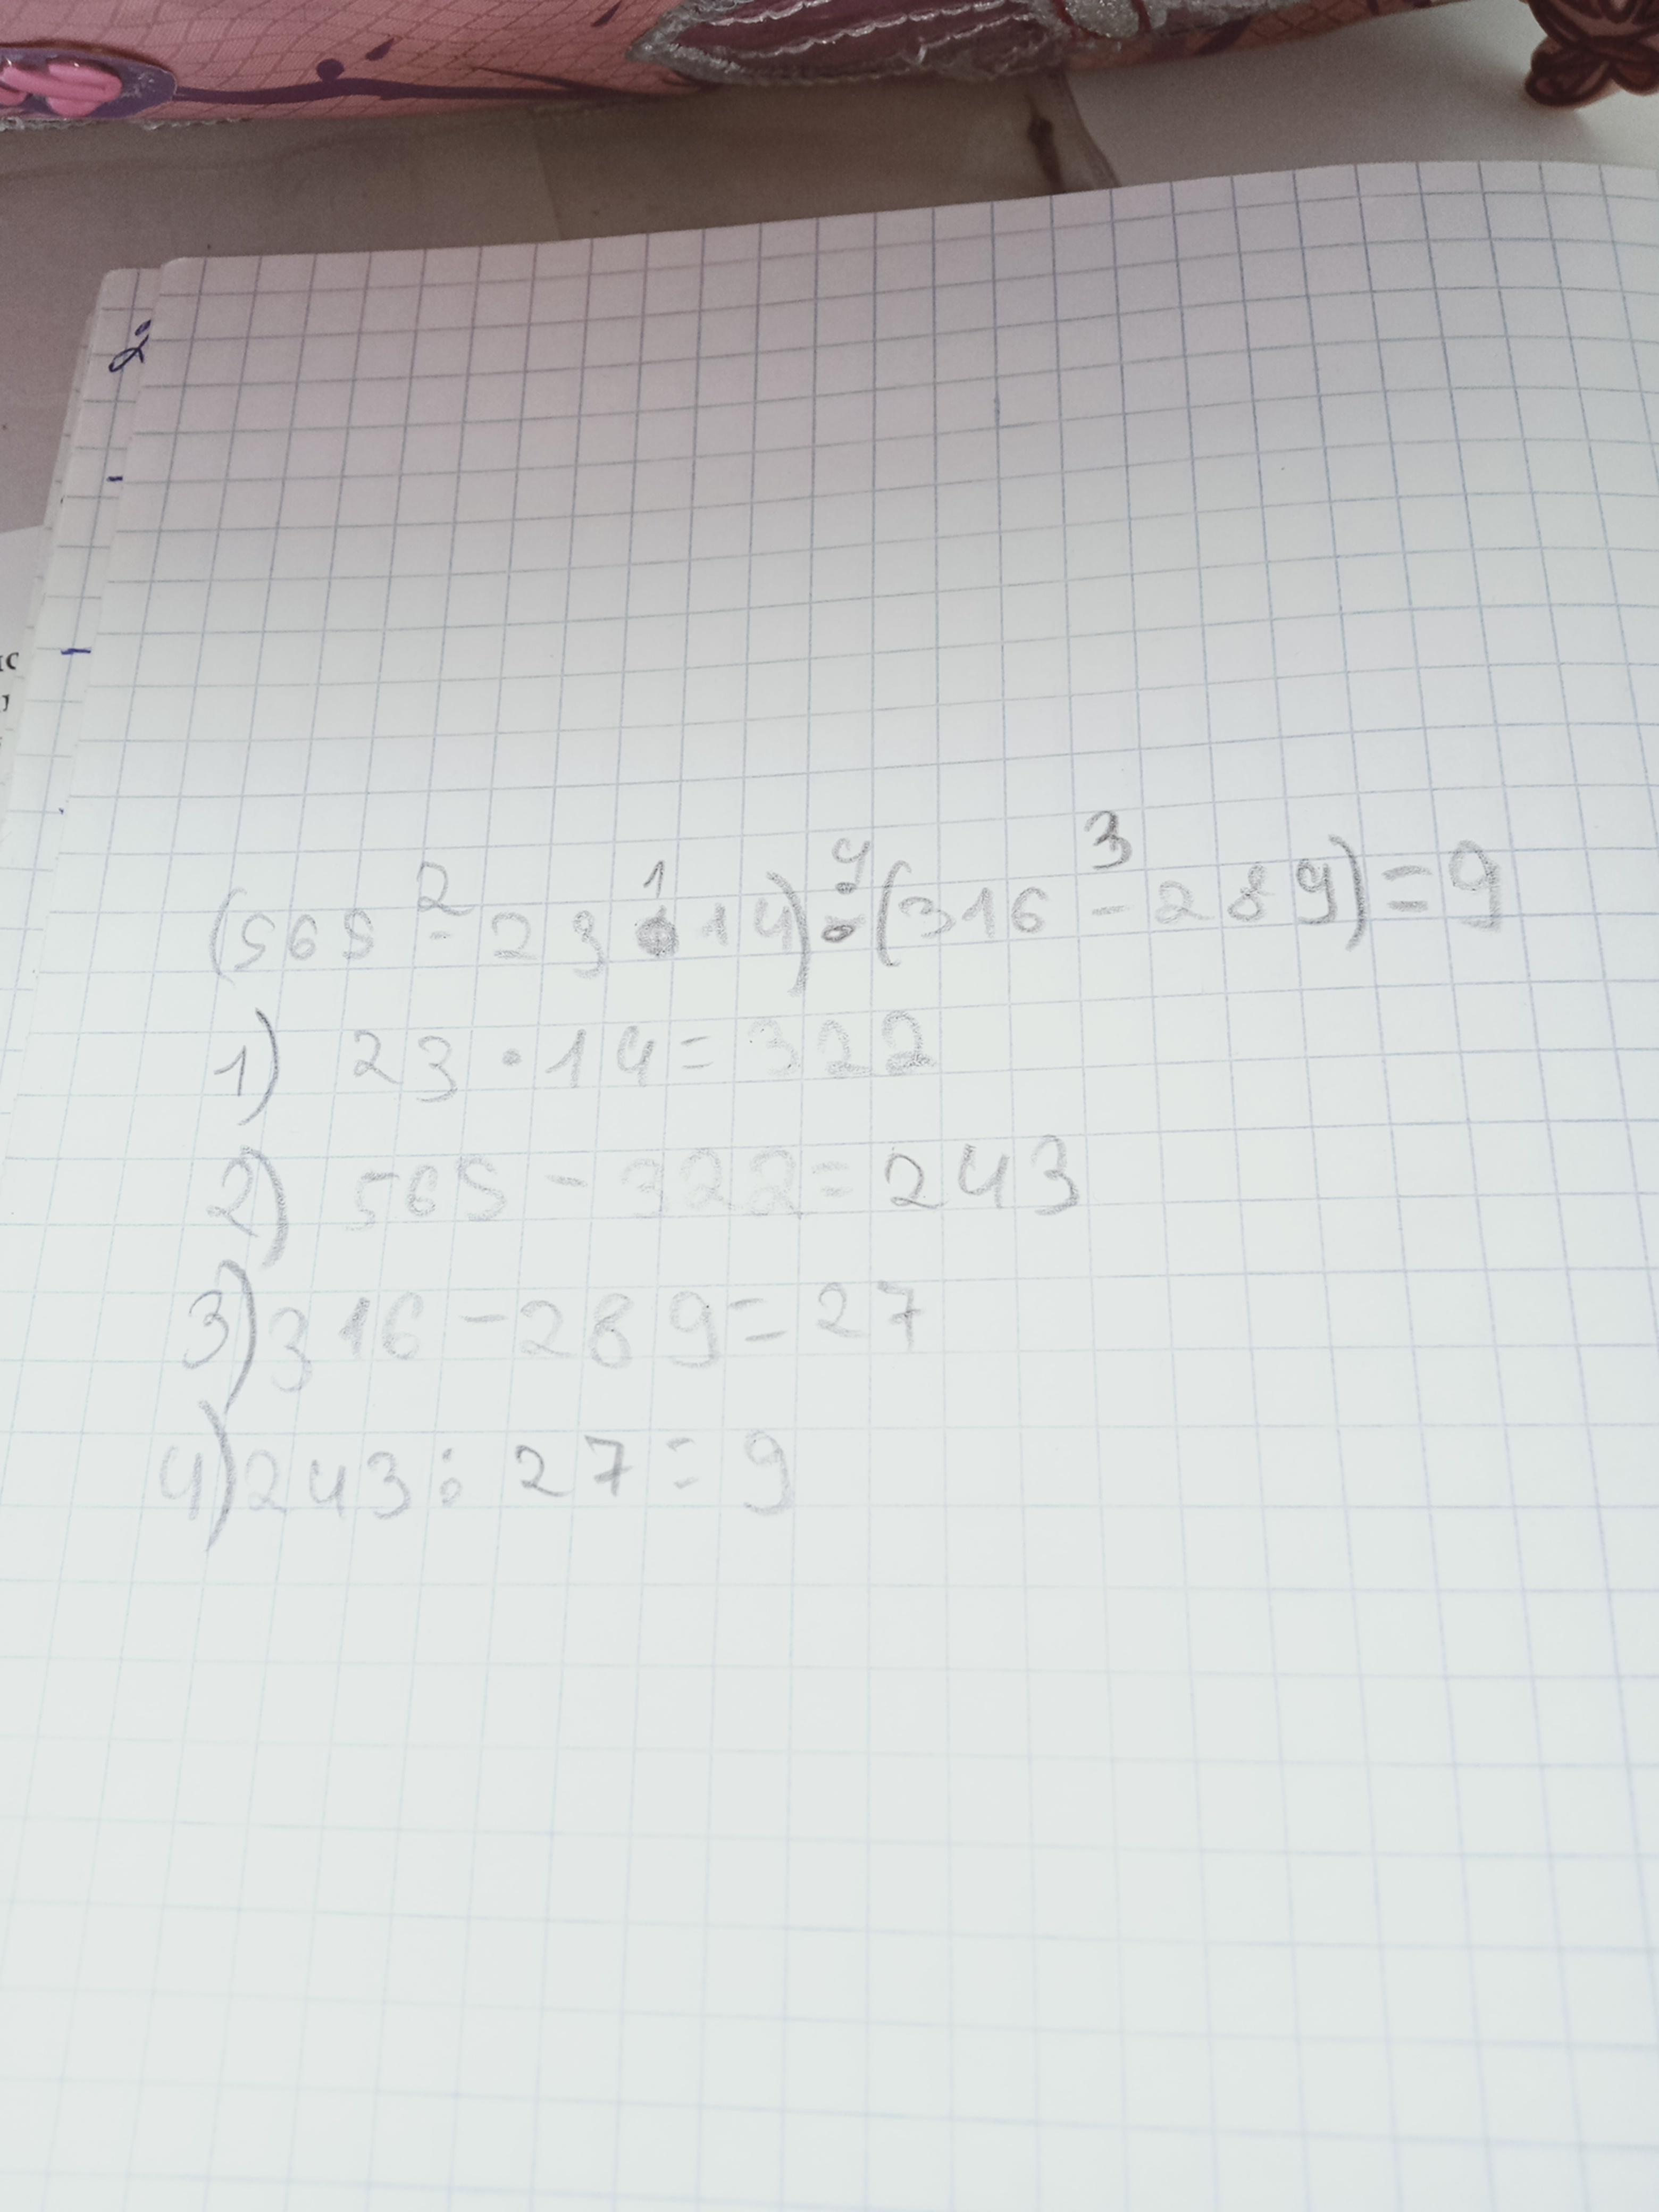 2 1 4 3
(565 - 23 · 14) : (316 - 289) = 9
1) 23 · 14 = 322
2) 565 - 322 = 243
3) 316 - 289 = 27
4) 243 : 27 = 9